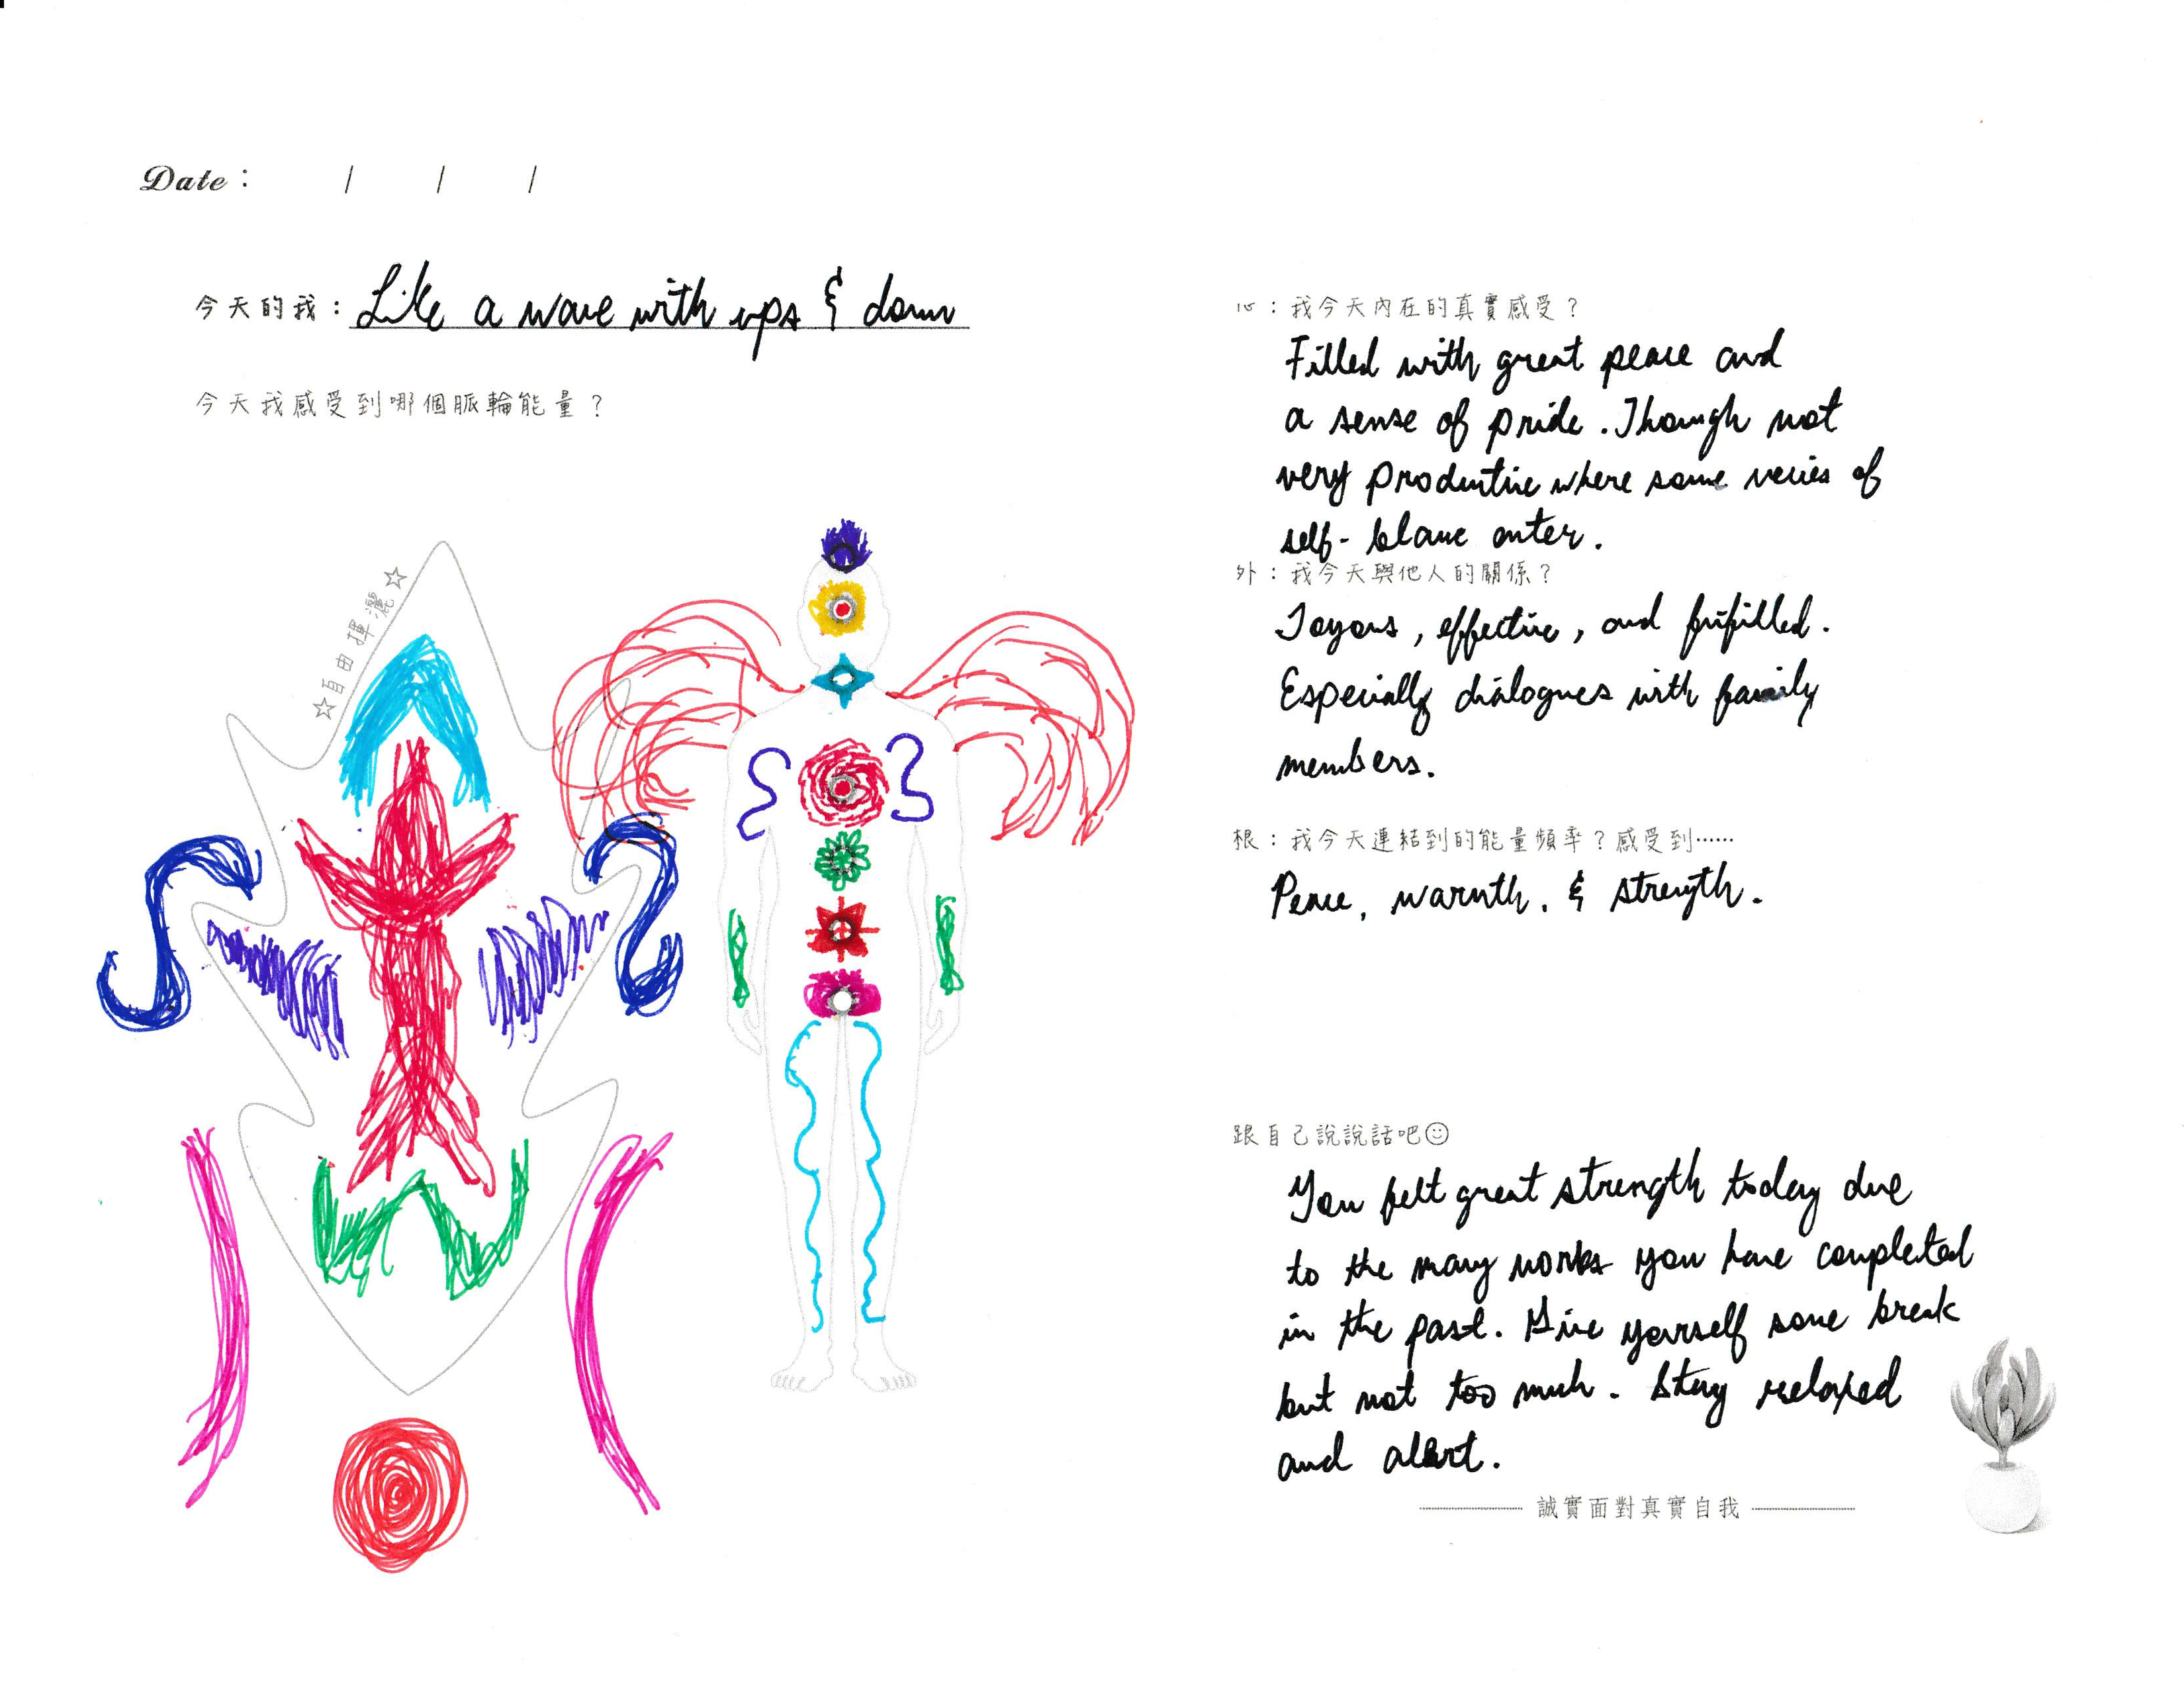 Date： / / /
今天的我：Like a wave with ups & down
今天我感受到哪個脈輪能量？
☆自由揮灑☆
心：我今天內在的真實感受？
Filled with great peace and
a sense of pride. Though not
very productive where some
of
self-blame enter.
外：我今天與他人的關係？
Joyous, effective, and fulfilled.
Especially dialogues with family
members.
根：我今天連結到的能量頻率？感受到⋯⋯
Peace, warmth, & strength.
跟自己說說話吧☺
You felt great strength today due
to the many works you have completed
in the past. Give yourself some break
but not too much. Stay relaxed
and alert.
誠實面對真實自我